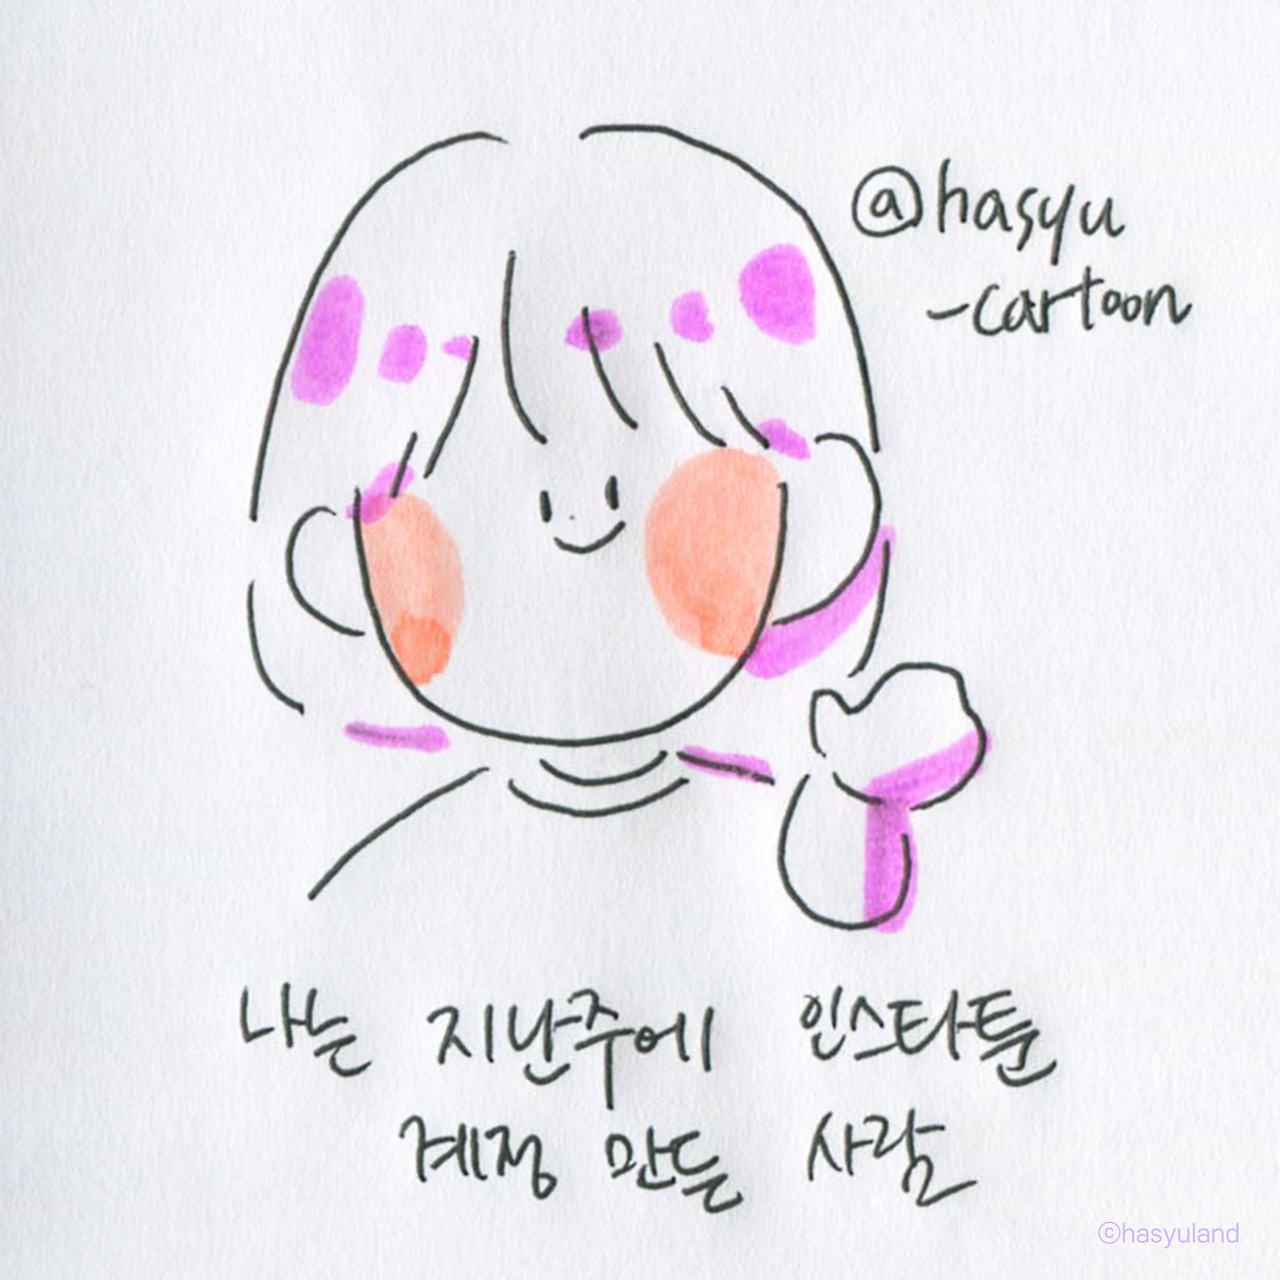 @hasyu
-cartoon
나는 지난주에 인스타툰
계정 만든 사람
©hasyuland